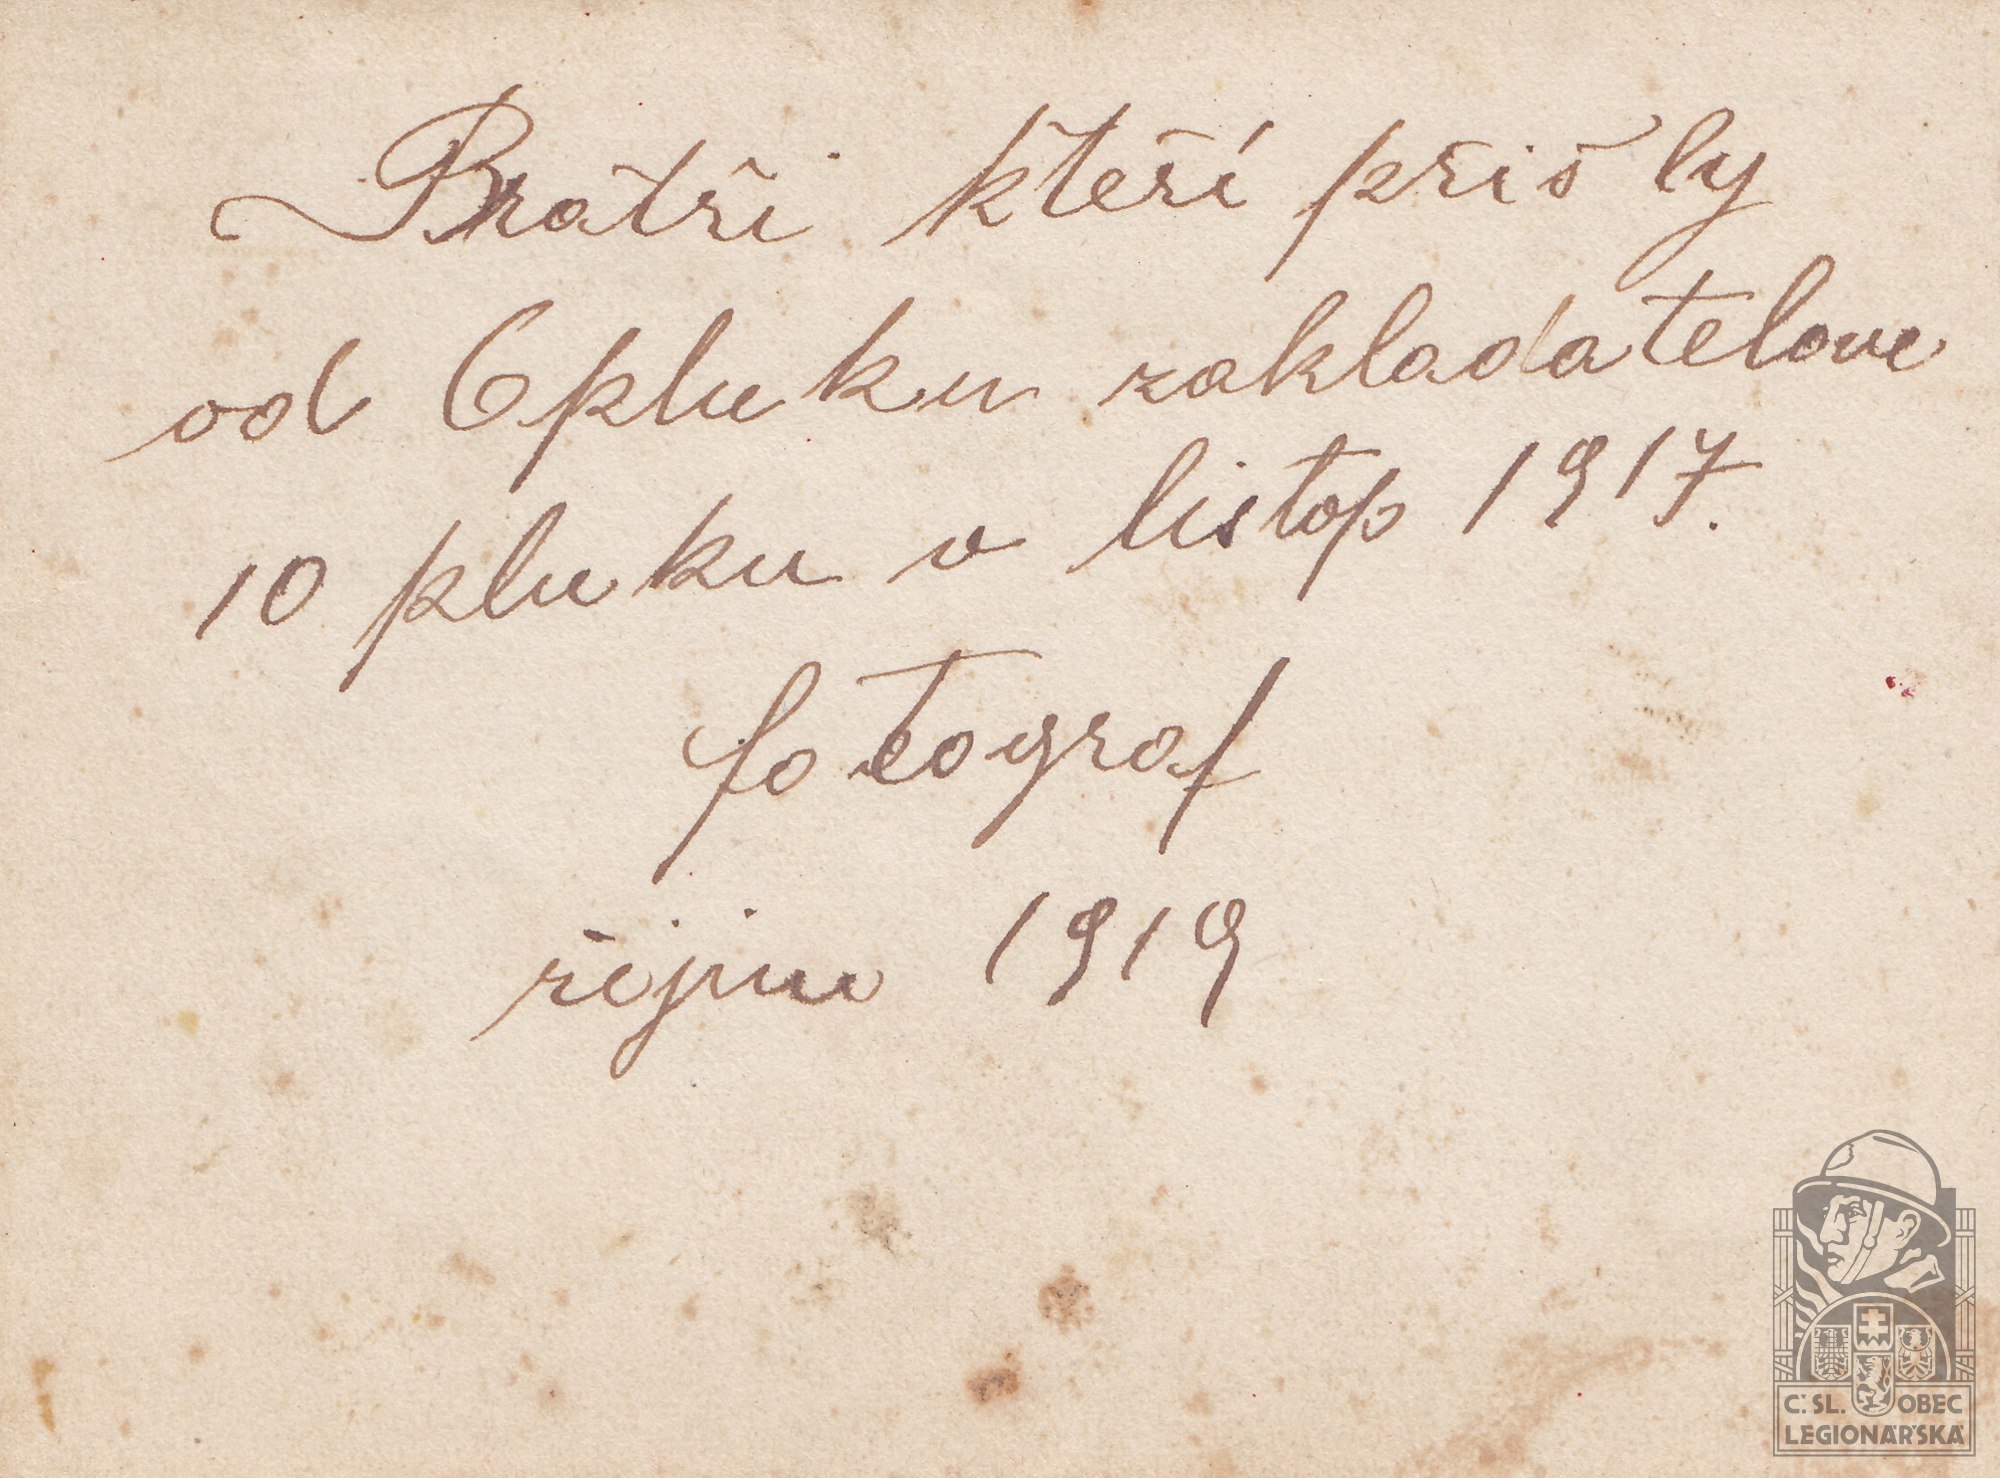 Bratři kteří přišly
od 6 pluku zakladatelove
10 pluku v listop 1917.
fotograf
řijnu 1919
Č. SL. OBEC
LEGIONÁŘSKÁ